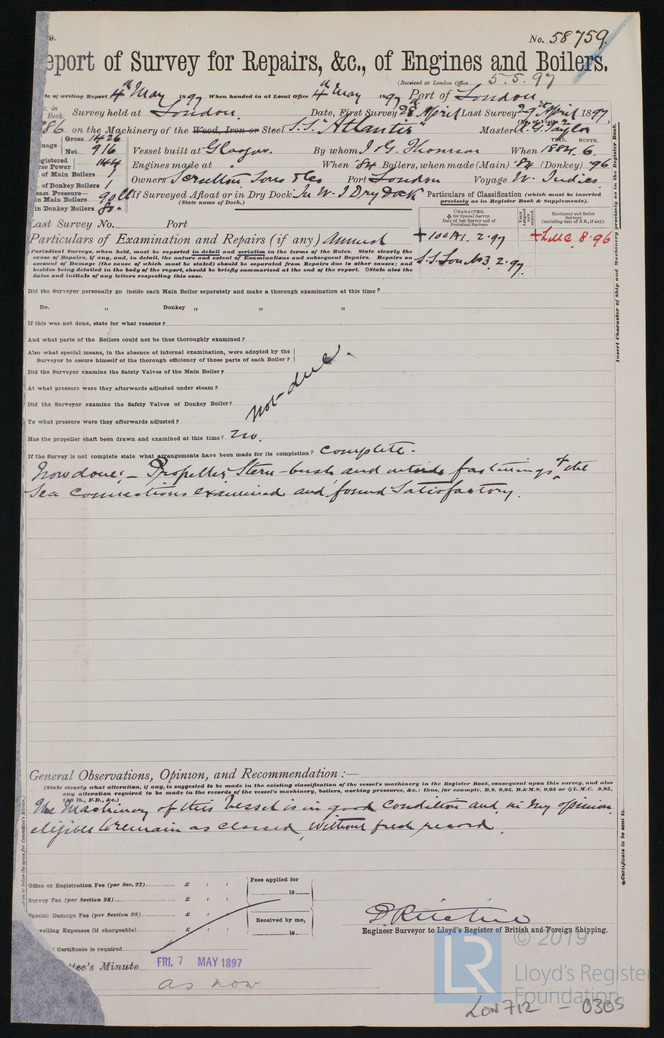 No. 58759
eport of Survey for Repairs, &c., of Engines and Boilers.
(Received at London Office 5.5.97
te of writing Report 4th May 1897 When handed in at Local Office 4th May 1897 Port of London
Survey held at London Date, First Survey 28 April Last Survey 29th April 1897
286 on the Machinery of the Wood, Iron or Steel S.S. Atlantis Master R. G. Taylor
Gross 1426
Net 916
Vessel built at Glasgow By whom J. & G. Thomson When 1884. 6
YEAR. MONTH.
144 Engines made at When '84 Boilers, when made (Main) '84 (Donkey) '96
of Main Boilers 1
of Donkey Boilers 1
Owners Scrutton Sons & Co Port London Voyage W. Indies
in Main Boilers 90 lb
in Donkey Boilers
If Surveyed Afloat or in Dry Dock In W. I Dry Dock
(State name of Dock.)
Particulars of Classification (which must be inserted precisely as in Register Book & Supplements).
Last Survey No. Port
CHARACTER.
Machinery and Boiler Surveys
+ 100A1. 2.97 + LMC. 8.96
S.S. Lon No3. 2.97.
Particulars of Examination and Repairs (if any) Annual
Periodical Surveys, when held, must be reported in detail and seriatim in the terms of the Rules. State clearly the
cause of Repairs, if any, and, in detail, the nature and extent of Examinations and subsequent Repairs. Repairs on
account of Damage (the cause of which must be stated) should be separated from Repairs due to other causes; and
besides being detailed in the body of the report, should be briefly summarised at the end of the report. State also the
dates and initials of any letters respecting this case.
Insert Character of Ship and Machinery precisely as in the Register Book.
Did the Surveyor personally go inside each Main Boiler separately and make a thorough examination at this time?
Do. " Donkey " " "
If this was not done, state for what reasons?
And what parts of the Boilers could not be thus thoroughly examined?
Also what special means, in the absence of internal examination, were adopted by the
Surveyor to assure himself of the thorough efficiency of those parts of each Boiler?
Did the Surveyor examine the Safety Valves of the Main Boiler?
At what pressure were they afterwards adjusted under steam?
Did the Surveyor examine the Safety Valves of Donkey Boiler?
To what pressure were they afterwards adjusted?
not due.
Has the propeller shaft been drawn and examined at this time? No.
If the Survey is not complete state what arrangements have been made for its completion? Complete.
Now done:- Propeller, Stern-bush and outside fastenings of the
Sea Connections examined and found Satisfactory.
General Observations, Opinion, and Recommendation:—
(State clearly what alteration, if any, is suggested to be made in the existing classification of the vessel's machinery in the Register Book, consequent upon this survey, and also
any alteration required to be made in the records of the vessel's machinery, boilers, working pressures, &c.: thus, for example, B.S. 9,95, B.&M.S. 9,95 or L.M.C. 9,95,
160 lb., F.D., &c.)
The Machinery of this Vessel is in good Condition and in my opinion
eligible to remain as classed, without fresh record.
Certificate to be sent to
Office or Registration Fee (per Sec. 27) £
Survey Fee (per Section 28) £
Special Damage Fee (per Section 28) £
avelling Expenses (if chargeable) £
Certificate is required
Fees applied for
18
Received by me,
18
D Ritchie
Engineer Surveyor to Lloyd's Register of British and Foreign Shipping.
ttee's Minute FRI. 7 MAY 1897
as now
LR
© 2019
Lloyd's Register
Foundation
LON712 - 0305